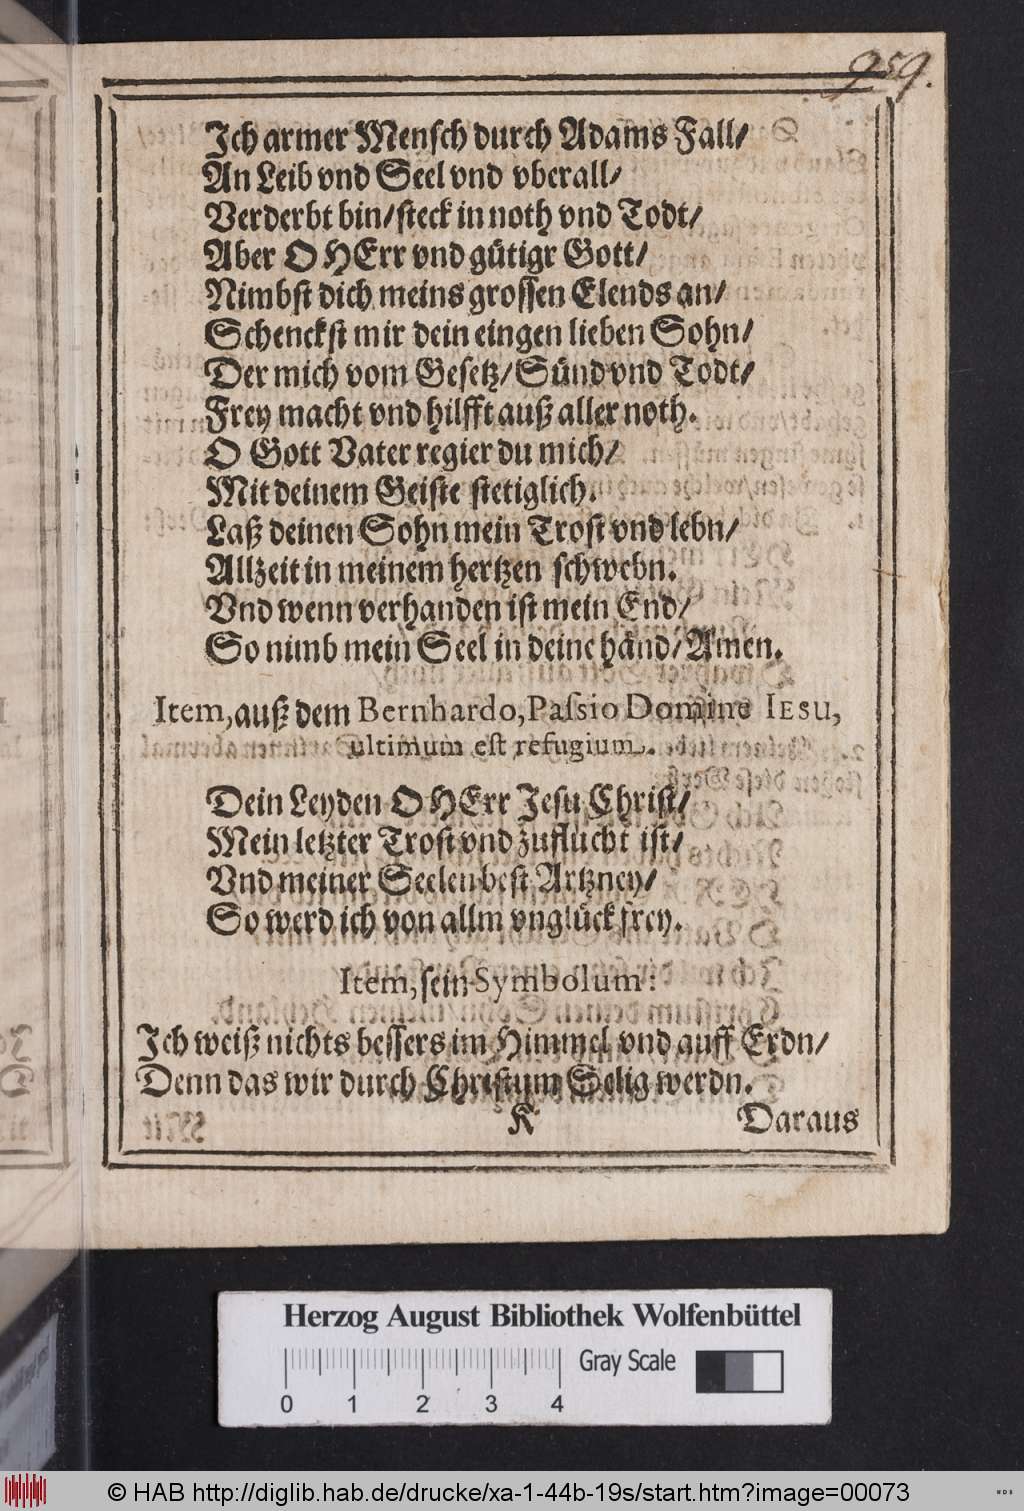 959.
Ich armer Mensch durch Adams Fall/
An Leib vnd Seel vnd vberall/
Verderbt bin/ steck in noth vnd Todt/
Aber O HErr vnd gütigr Gott/
Nimbst dich meins grossen Elends an/
Schenckst mir dein eingen lieben Sohn/
Der mich vom Gesetz/ Sünd vnd Todt/
Frey macht vnd hilfft auß aller noth.
O Gott Vater regier du mich/
Mit deinem Geiste stetiglich.
Laß deinen Sohn mein Trost vnd lebn/
Allzeit in meinem hertzen schwebn.
Vnd wenn verhanden ist mein End/
So nimb mein Seel in deine händ/ Amen.
Item, auß dem Bernhardo, Passio Domine IESU,
ultimum est refugium.
Dein Leyden O HErr Jesu Christ/
Mein letzter Trost vnd zuflucht ist/
Vnd meiner Seelen best Artzney/
So werd ich von allm vnglück frey.
Item, sein Symbolum:
Ich weiß nichts bessers im Himmel vnd auff Erdn/
Denn das wir durch Christum Selig werdn.
K Daraus
Herzog August Bibliothek Wolfenbüttel
Gray Scale
0 1 2 3 4
© HAB http://diglib.hab.de/drucke/xa-1-44b-19s/start.htm?image=00073